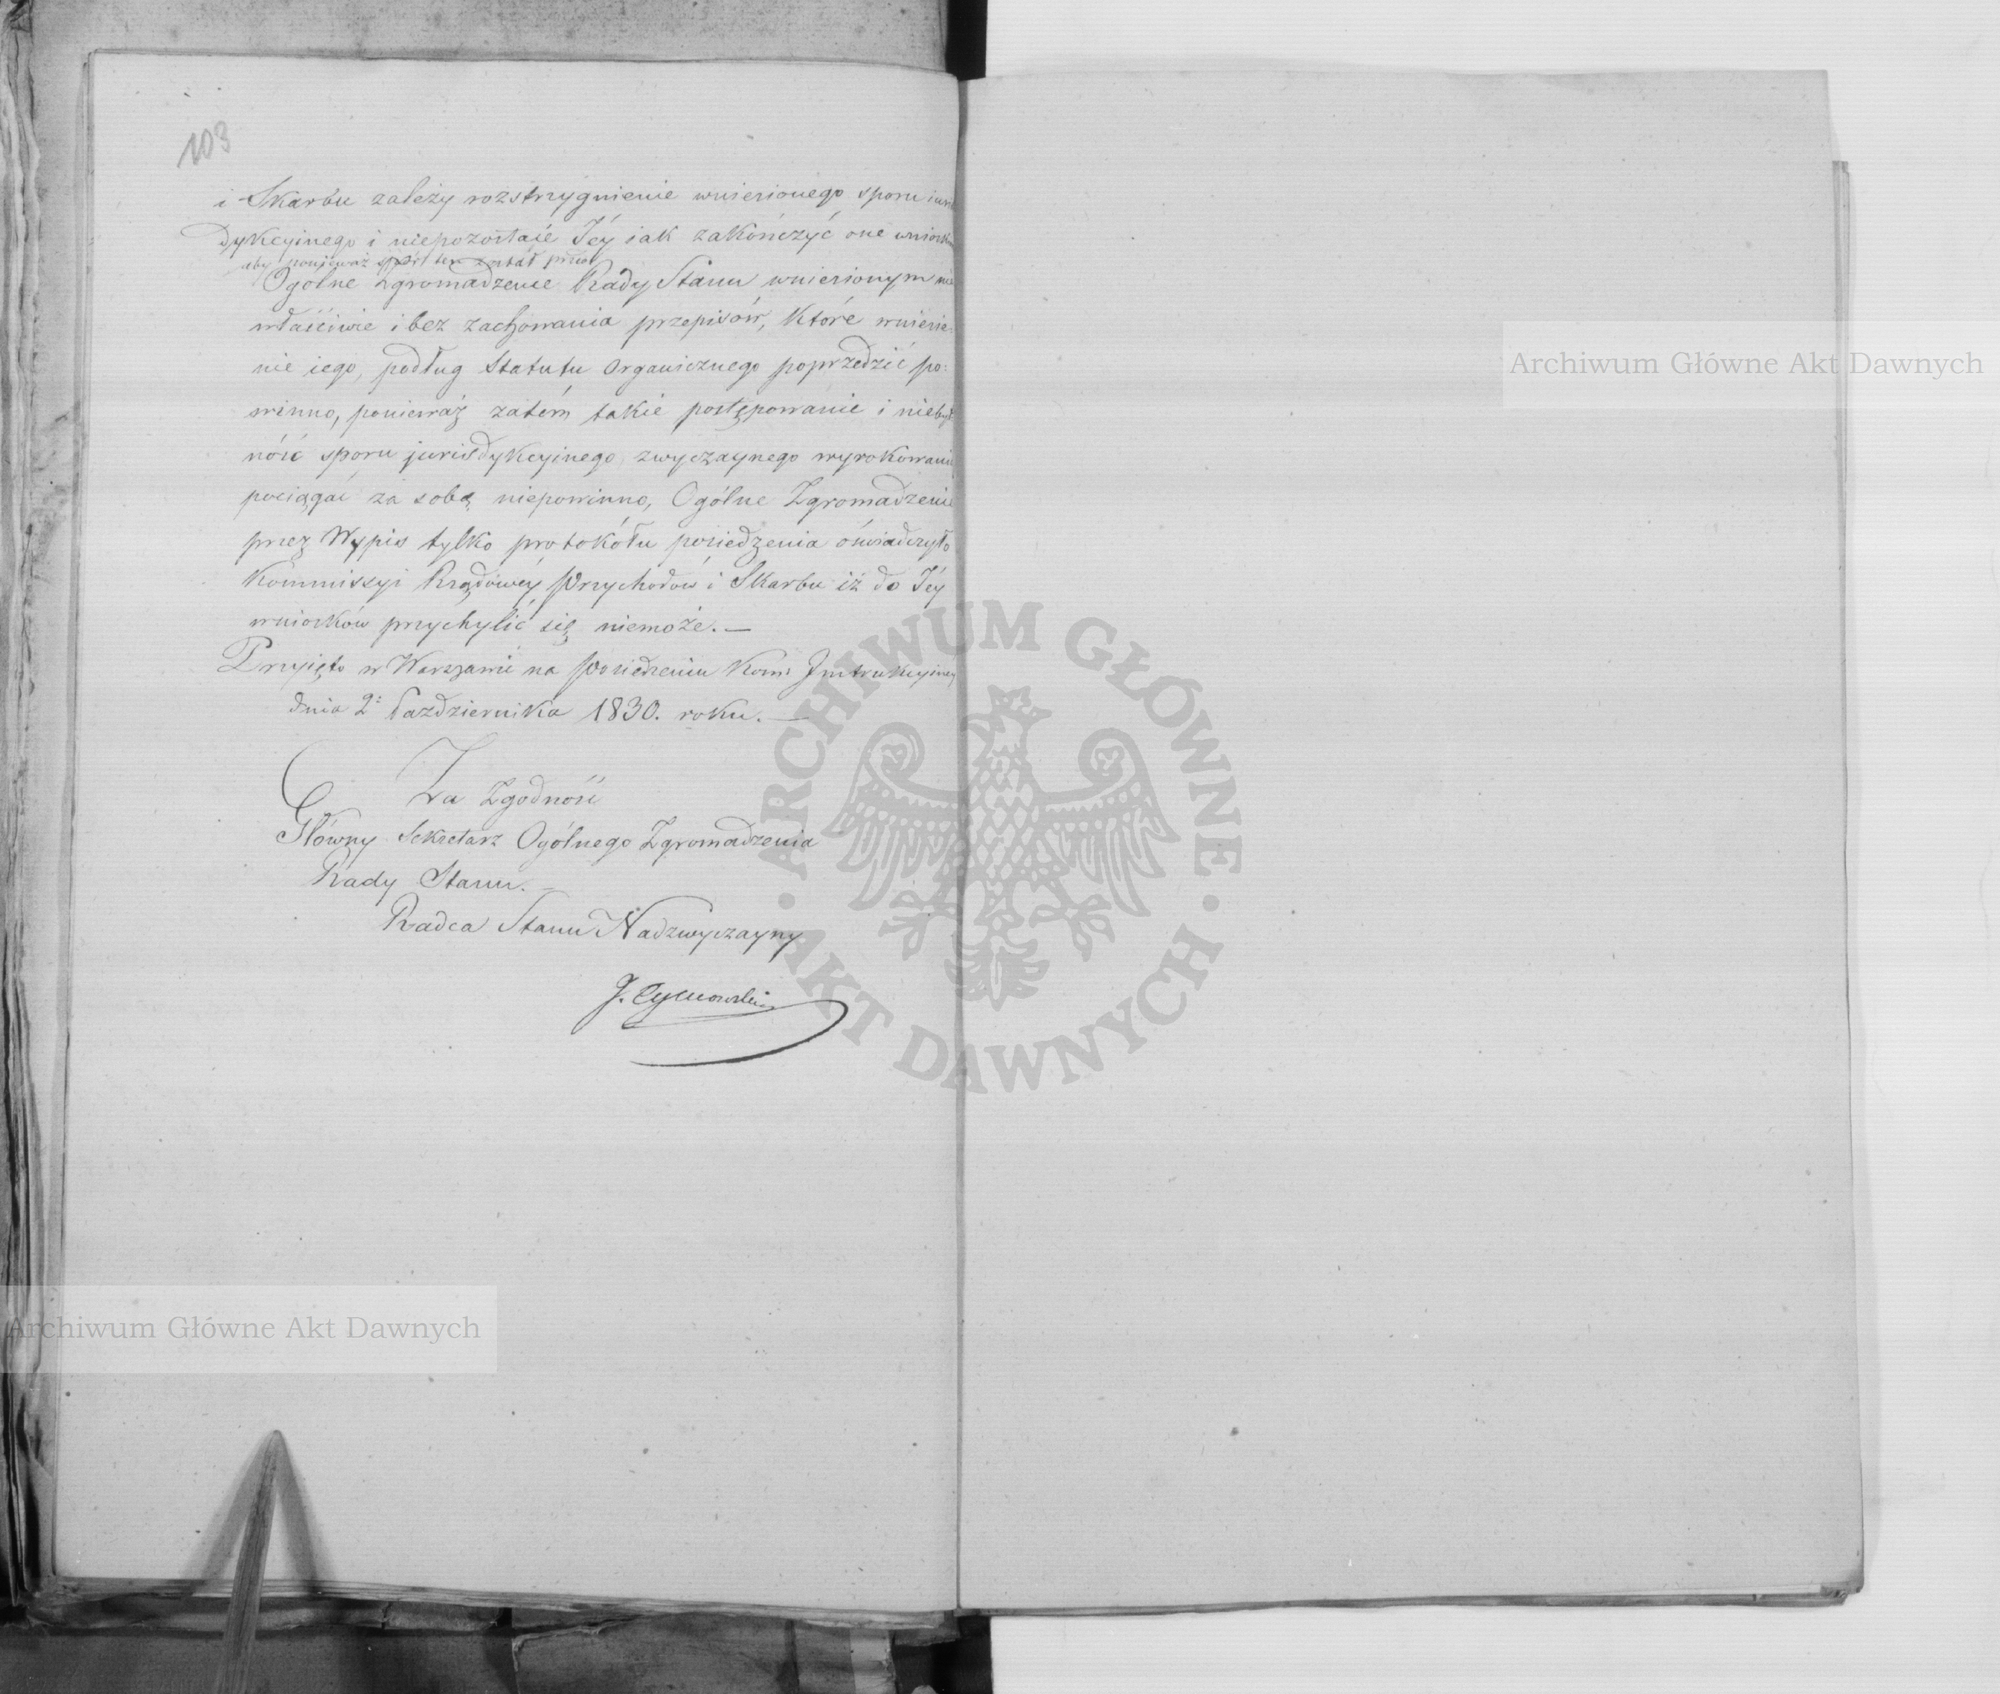 103
i Skarbu zależy rozstrzygnienie wniesionego sporu iuris
dykcyinego i niepozostaie Jéy iak zakończyć one wnioskiem
aby ponieważ spór ten został przed
Ogólne Zgromadzenie Rady Stanu wniesionym nie
właściwie i bez zachowania przepisów, które wniesie=
nie iego, podług Statutu Organicznego poprzedzić po=
winno, ponieważ zatém takie postępowanie i niebyt
ność sporu jurisdykcyinego zwyczaynego wyrokowania
pociągać za sobą niepowinno, Ogólne Zgromadzenie
przez Wypis tylko protokółu posiedzenia oświadczyło
Kommissyi Rządowéy Przychodów i Skarbu iż do Jéy
wniosków przychylić się niemoże. —
Przyięto w Warszawie na Posiedzeniu Kom: Instrukcyiney
dnia 2: Października 1830. roku. —
Za Zgodność
Główny Sekretarz Ogólnego Zgromadzenia
Rady Stanu. —
Radca Stanu Nadzwyczayny
J.
Archiwum Główne Akt Dawnych
Archiwum Główne Akt Dawnych
ARCHIWUM GŁÓWNE
AKT DAWNYCH